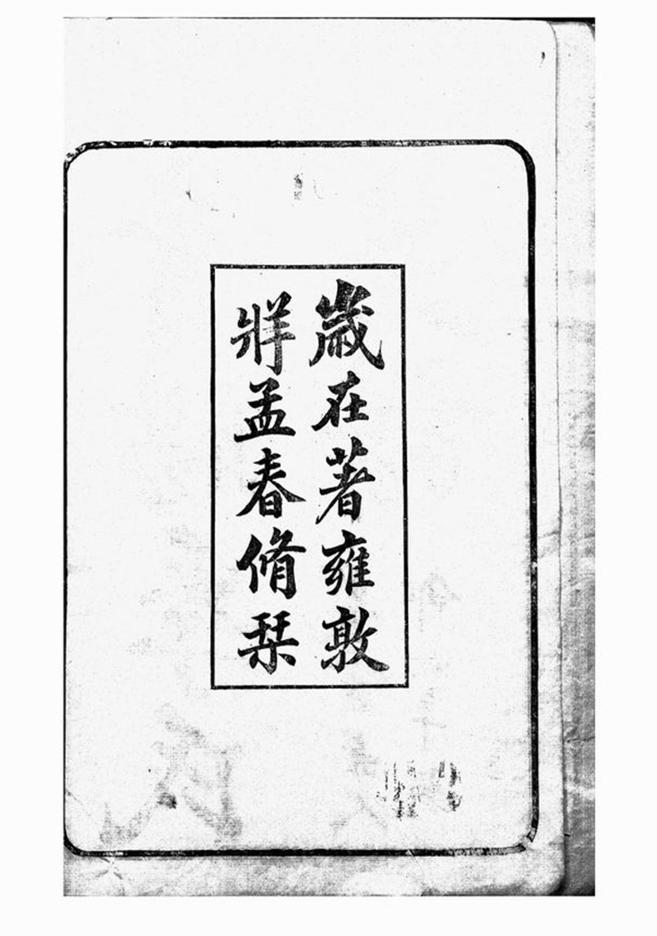 歲在著雍敦
牂孟春脩栞